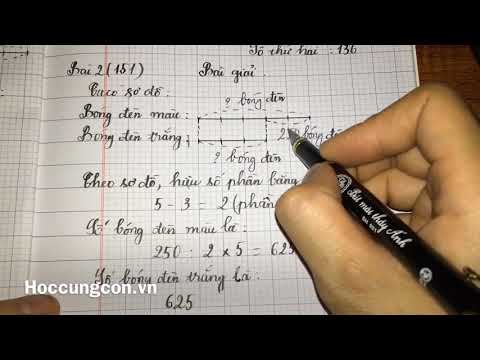 Tổ thứ hai : 136
Bài 2 (151)
Bài giải :
Ta có sơ đồ :
? bóng đèn
Bóng đèn màu :
Bóng đèn trắng :
bóng đèn
? bóng đèn
Theo sơ đồ, hiệu số phần bằng
5 - 3 = 2 (phần
Số bóng đèn màu là :
250 : 2 x 5 = 625
Số bóng đèn trắng là :
625
Hoccungcon.vn
Bút mài thầy Ánh